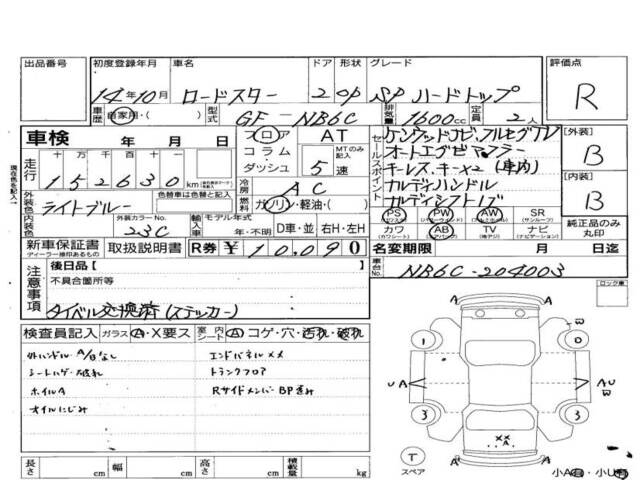 出品番号 初度登録年月 車名 ドア 形状 グレード 評価点
14年10月 ロードスター 2 OP SP ハードトップ R
車歴 自家用・( ) 型式 GF-NB6C 排気量 1600cc 定員 2人
車検 年 月 日 フロア コラム ダッシュ AT MTのみ記入 5速
走行 十万 万 千 百 十 152630km
セールスポイント
ケンウッドナビ、フルセグTV
オートエグゼマフラー
キーレス、キー×2(車内)
ナルディハンドル
ナルディシフトノブ
【外装】 B
【内装】 B
冷房 AC
外装色 ライトブルー 色替車は色替と記入
燃料 ガソリン・軽油・( )
内装色 外装カラーNo. 23C 輸入車 モデル年式 年・不明 D車・並 右H・左H
PS PW AW SR
カワ AB TV ナビ
純正品のみ丸印
新車保証書 取扱説明書 R券 ¥10,090
名変期限 月 日迄
車台No. NB6C-204003
注意事項 後日品【 】
不具合箇所等
タイベル交換済(ステッカー)
現在色を記入
ロック車
検査員記入 ガラス A・X要ス 室内シート A コゲ・穴・汚れ・破れ
外ハンドル・A/Bなし エンドパネル××
シートハゲ・破れ トランクフロア
ホイルA RサイドメンバーBP歪み
オイルにじみ
長さ cm 幅 cm 高さ cm 積載量 kg
A
A A
1 0
UA AU
3 3
××
A
A A
T スペア
小A 小U